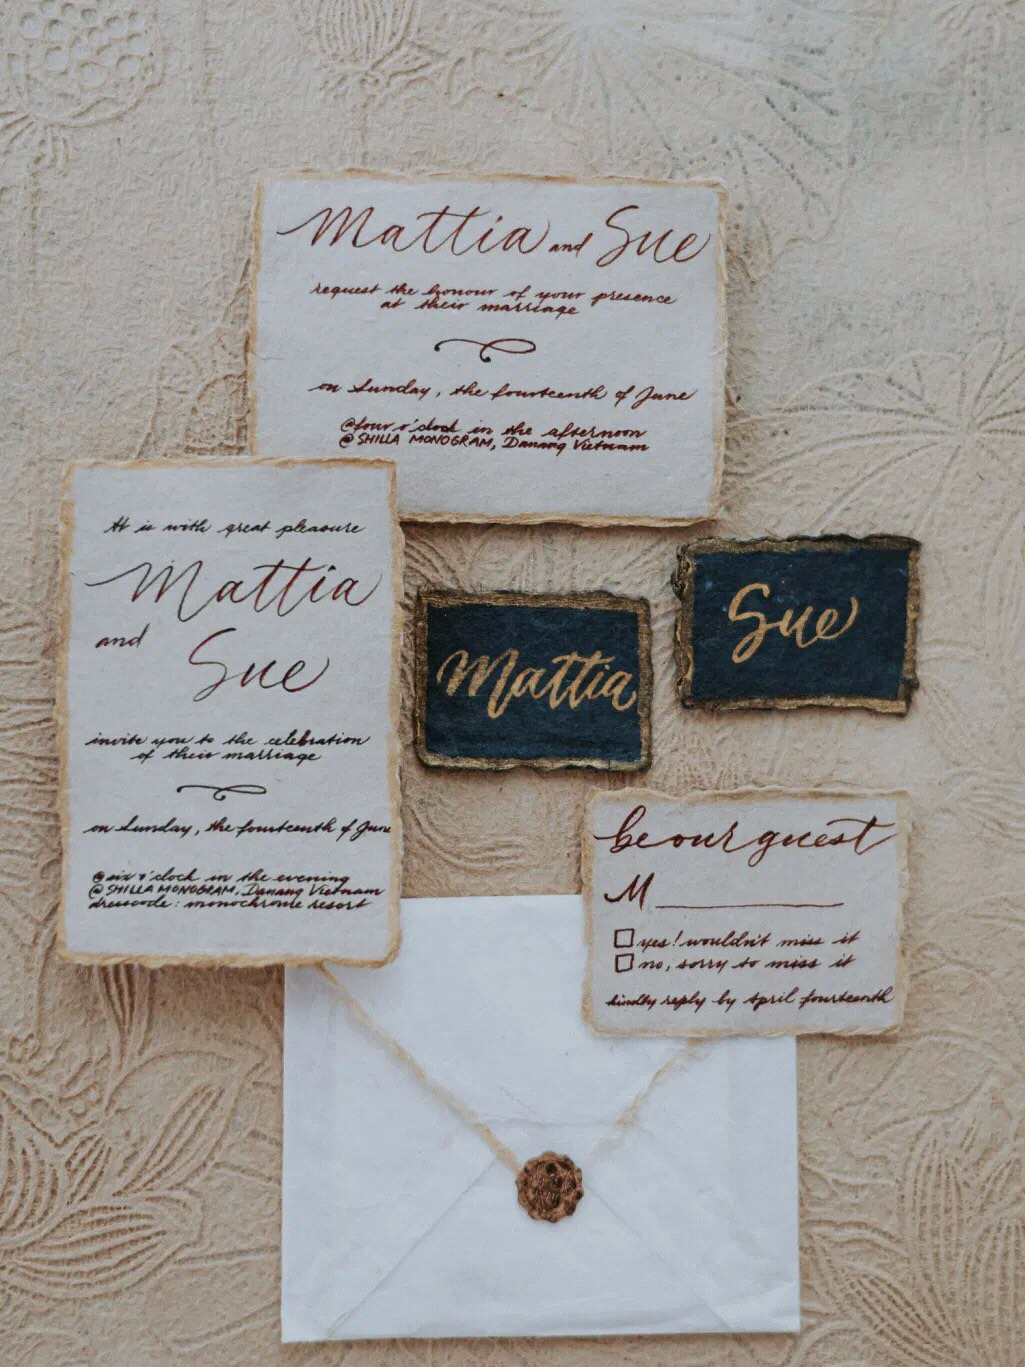 Mattia and Sue
request the honour of your presence
at their marriage
on Sunday, the fourteenth of June
@four o'clock in the afternoon
@SHILLA MONOGRAM, Danang Vietnam
It is with great pleasure
Mattia
and
Sue
invite you to the celebration
of their marriage
on Sunday, the fourteenth of June
@six o'clock in the evening
@SHILLA MONOGRAM, Danang Vietnam
dresscode: monochrome resort
Mattia
Sue
be our guest
M
yes! wouldn't miss it
no, sorry to miss it
kindly reply by April fourteenth